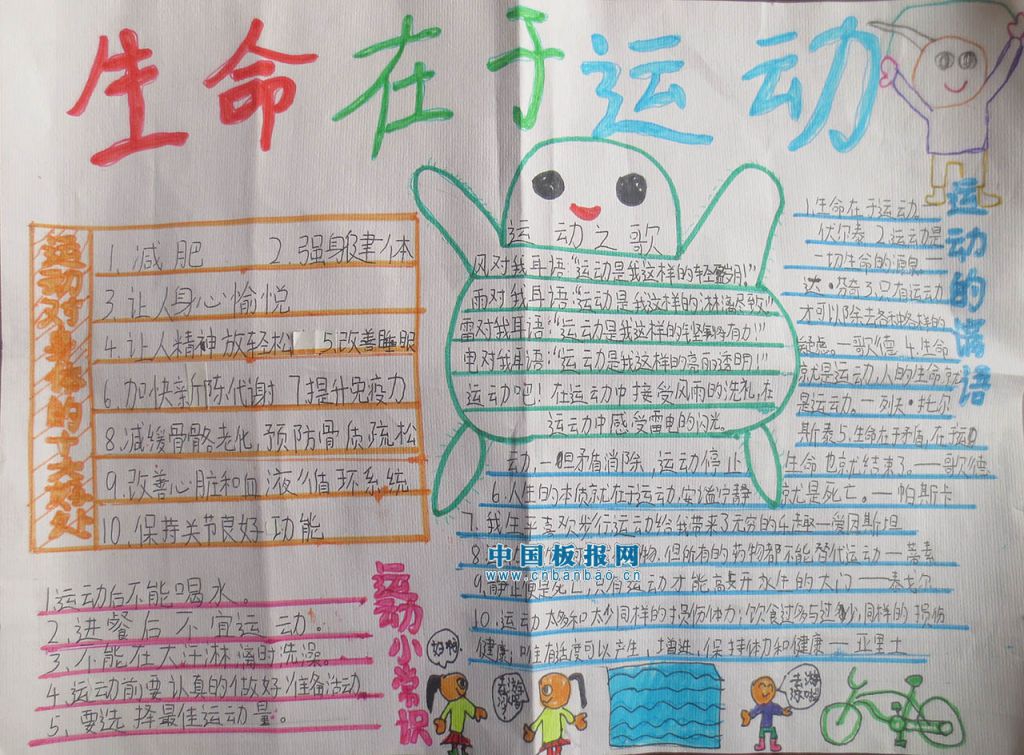 生命在于运动
运动对身体的十大好处
1、减肥 2、强身健体
3、让人身心愉悦
4、让人精神放轻松 5、改善睡眠
6、加快新陈代谢 7、提升免疫力
8、减缓骨骼老化,预防骨质疏松
9、改善心脏和血液循环系统
10、保持关节良好功能
运动之歌
风对我耳语:“运动是我这样的轻盈!”
雨对我耳语:“运动是我这样的淋漓尽致”
雷对我耳语:“运动是我这样的铿锵有力!”
电对我耳语:“运动是我这样的亮丽透明!”
运动吧!在运动中接受风雨的洗礼,在
运动中感受雷电的闪光。
运动的满语
1.生命在于运动。
伏尔泰 2.运动是
一切生命的源泉—
达·芬奇 3.只有运动
才可以除去各种各样的
疑虑。—歌德 4.生命
就是运动,人的生命就
是运动。—列夫·托尔
斯泰 5.生命在于矛盾,在于运
动,一旦矛盾消除,运动停止 生命也就结束了。——歌德
6.人生的本质就在于运动,安谧宁静 就是死亡。—帕斯卡
7.我生平喜欢步行,运动给我带来了无穷的乐趣—爱因斯坦
8 物,但所有的药物都不能替代运动—蒂素
9.静止便是死亡,只有运动才能敲开永生的大门——泰戈尔
10.运动太多和太少,同样的损伤体力;饮食过多与过少,同样的损伤
健康;唯有适度可以产生,增进,保持体力和健康—亚里士
运动小常识
1.运动后不能喝水。
2.进餐后不宜运动。
3.不能在大汗淋漓时洗澡。
4.运动前要认真的做好准备活动
5、要选择最佳运动量。
好啊.
去游泳啦
中国板报网
www.cnbanbao.cn